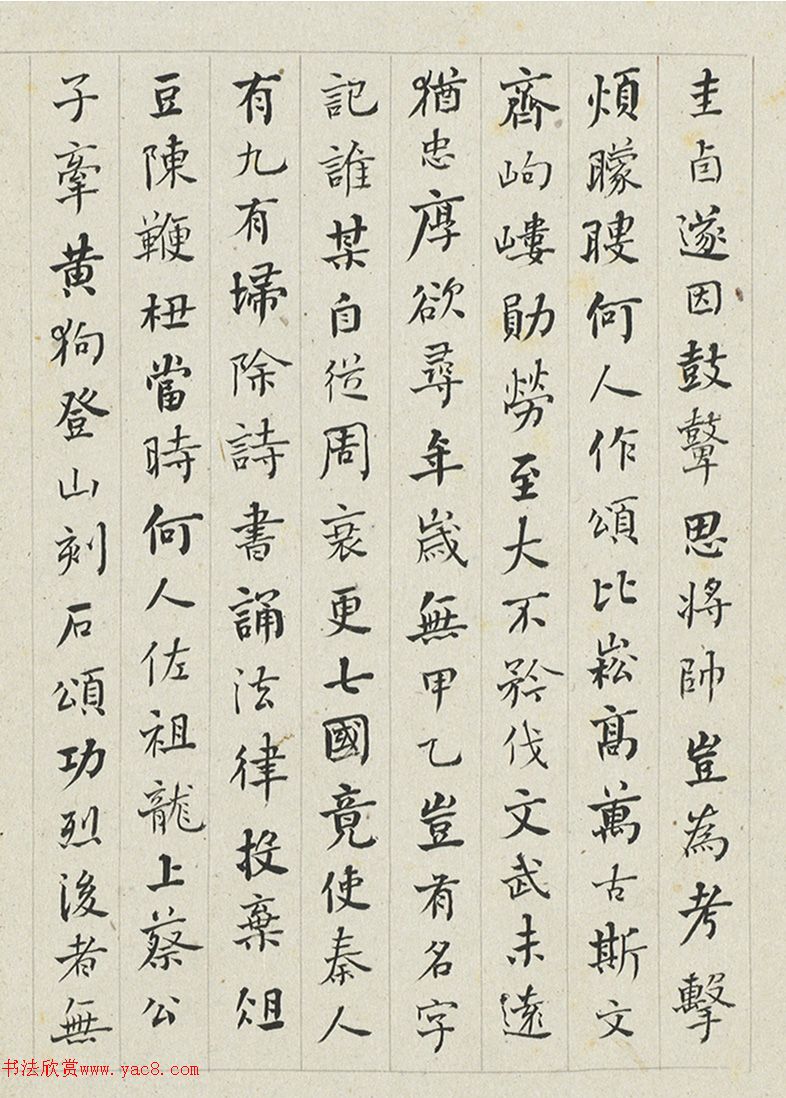 圭卣遂因鼓鼙思將帥豈為考擊
煩矇瞍何人作頌比崧高萬古斯文
齊岣嶁勛勞至大不矜伐文武未遠
猶忠厚欲尋年歲無甲乙豈有名字
記誰某自從周衰更七國竟使秦人
有九有掃除詩書誦法律投棄俎
豆陳鞭杻當時何人佐祖龍上蔡公
子牽黃狗登山刻石頌功烈後者無
书法欣赏www.yac8.com